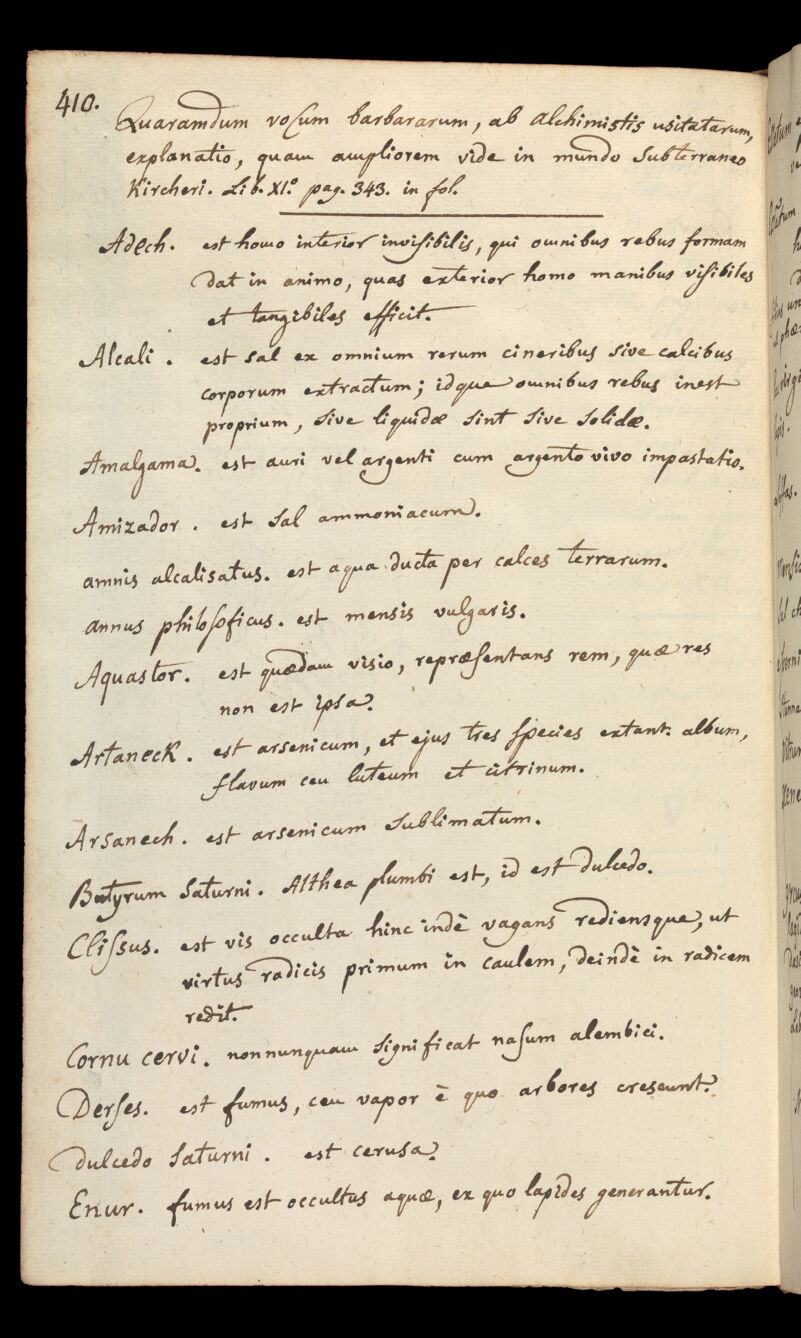 410.
Quaramdum vocum barbararum, ab Alchimistis usitatarum,
explanatio, quam ampliorem vide in mundo Subterraneo
Kircheri. Lib. XI.º pag. 343. in fol.
Adech. est homo interior invisibilis, qui omnibus rebus formam
dat in animo, quas exterior homo manibus visibiles
et tangibiles efficit.
Alcali. est sal ex omnium rerum cineribus sive calcibus
corporum extractum; idque omnibus rebus inest
proprium, sive liquidæ sint sive solidæ.
Amalgama. est auri vel argenti cum argento vivo impastatio.
Amizador. est sal ammoniacum.
amnis alcalisatus. est aqua ducta per calces terrarum.
annus philosoficus. est mensis vulgaris.
Aquastor. est quædam visio, repræsentans rem, quæ res
non est ipsa.
Artaneck. est arsenicum, et ejus tres species extant. album,
flavum ceu luteum et citrinum.
Arsanech. est arsenicum sublimatum.
Butyrum Saturni. Althea plumbi est, id est dulcedo.
Clissus. est vis occulta hinc indè vagans rediensque, ut
virtus radicis primum in caulem, deindè in radicem
redit.
Cornu cervi. nonnunquam significat nasum alembici.
Derses. est fumus, ceu vapor è quo arbores crescunt.
dulcedo Saturni. est cerusa.
Enur. fumus est occultus aquæ, ex quo lapides generantur.